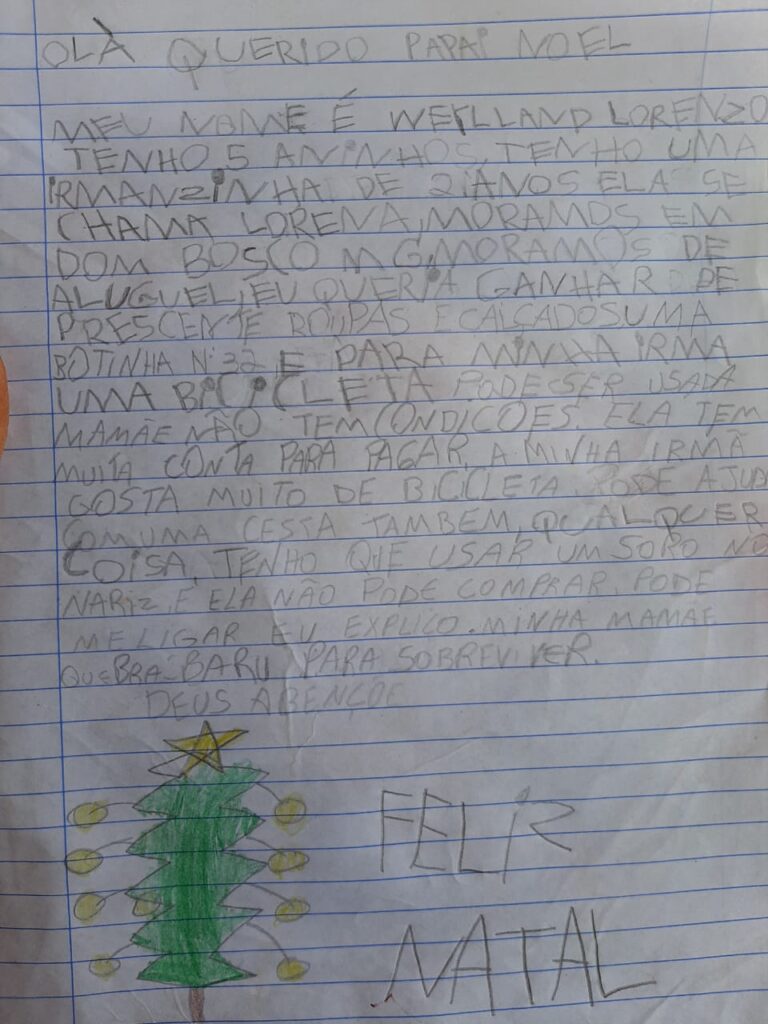 OLÀ QUERIDO PAPAI NOEL
MEU NOME É WEYLLAND LORENZO
TENHO 5 ANINHOS, TENHO UMA
IRMANZINHA DE 2 ANOS ELA SE
CHAMA LORENA, MORAMOS EM
DOM BOSCO MG, MORAMOS DE
ALUGUEL, EU QUERIA GANHAR DE
PRESCENTE ROUPAS E CALÇADOS UMA
BOTINHA Nº 32, E PARA MINHA IRMA
UMA BICICLETA PODE SER USADA
MAMÃE NÃO TEM CONDICOES. ELA TEM
MUITA CONTA PARA PAGAR. A MINHA IRMÃ
GOSTA MUITO DE BICICLETA. PODE AJUDA
COM UMA CESTA TAMBEM, QUALQUER
COISA. TENHO QUE USAR UM SORO NO
NARIZ, E ELA NÃO PODE COMPRAR. PODE
ME LIGAR EU EXPLICO. MINHA MAMÃE
QUEBRA BARU PARA SOBREVIVER.
DEUS ABENÇOE
FELIZ
NATAL